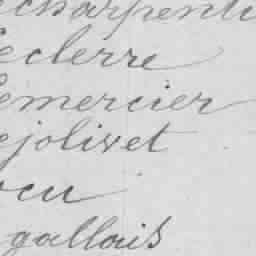 echarpenti
eclerre
emercier
ejolivet
ocu
gallais